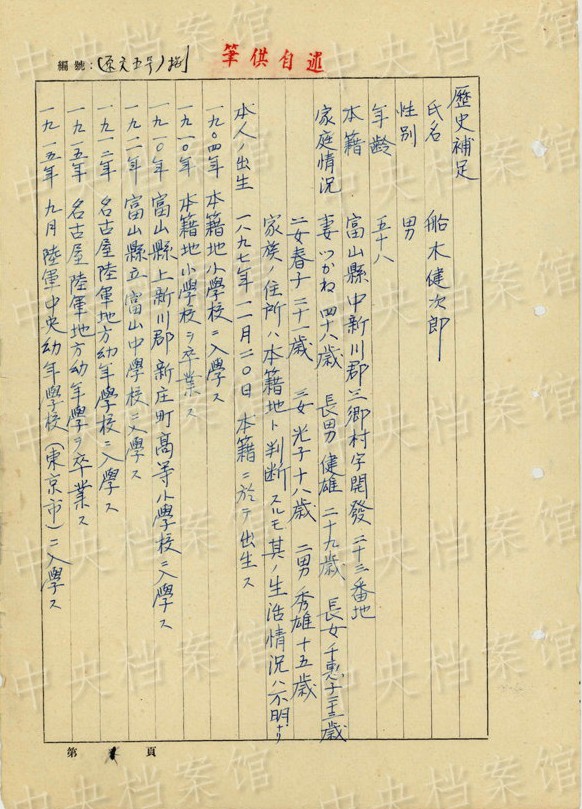 編號：(原文五号)摘
筆供自述
歷史補足
氏名　船木健次郎
性別　男
年齢　五十八
本籍　富山縣中新川郡三郷村字開發二十三番地
家庭情況　妻つかね四十八歳　長男健雄二十九歳　長女千惠子二十三歳
二女春子二十一歳　三女光子十八歳　二男秀雄十五歳
家族ノ住所ハ本籍地ト判断スルモ其ノ生活情況ハ不明ナリ
本人ノ出生　一八九七年一一月二〇日本籍ニ於テ出生ス
一九〇四年　本籍地小學校ニ入學ス
一九一〇年　本籍地小學校ヲ卒業ス
一九一〇年　富山縣上新川郡新庄町高等小學校ニ入學ス
一九一一年　富山縣立富山中學校ニ入學ス
一九一二年　名古屋陸軍地方幼年學校ニ入學ス
一九一五年　名古屋陸軍地方幼年學校ヲ卒業ス
一九一五年九月陸軍中央幼年學校(東京市)ニ入學ス
第 1 頁
中央档案馆